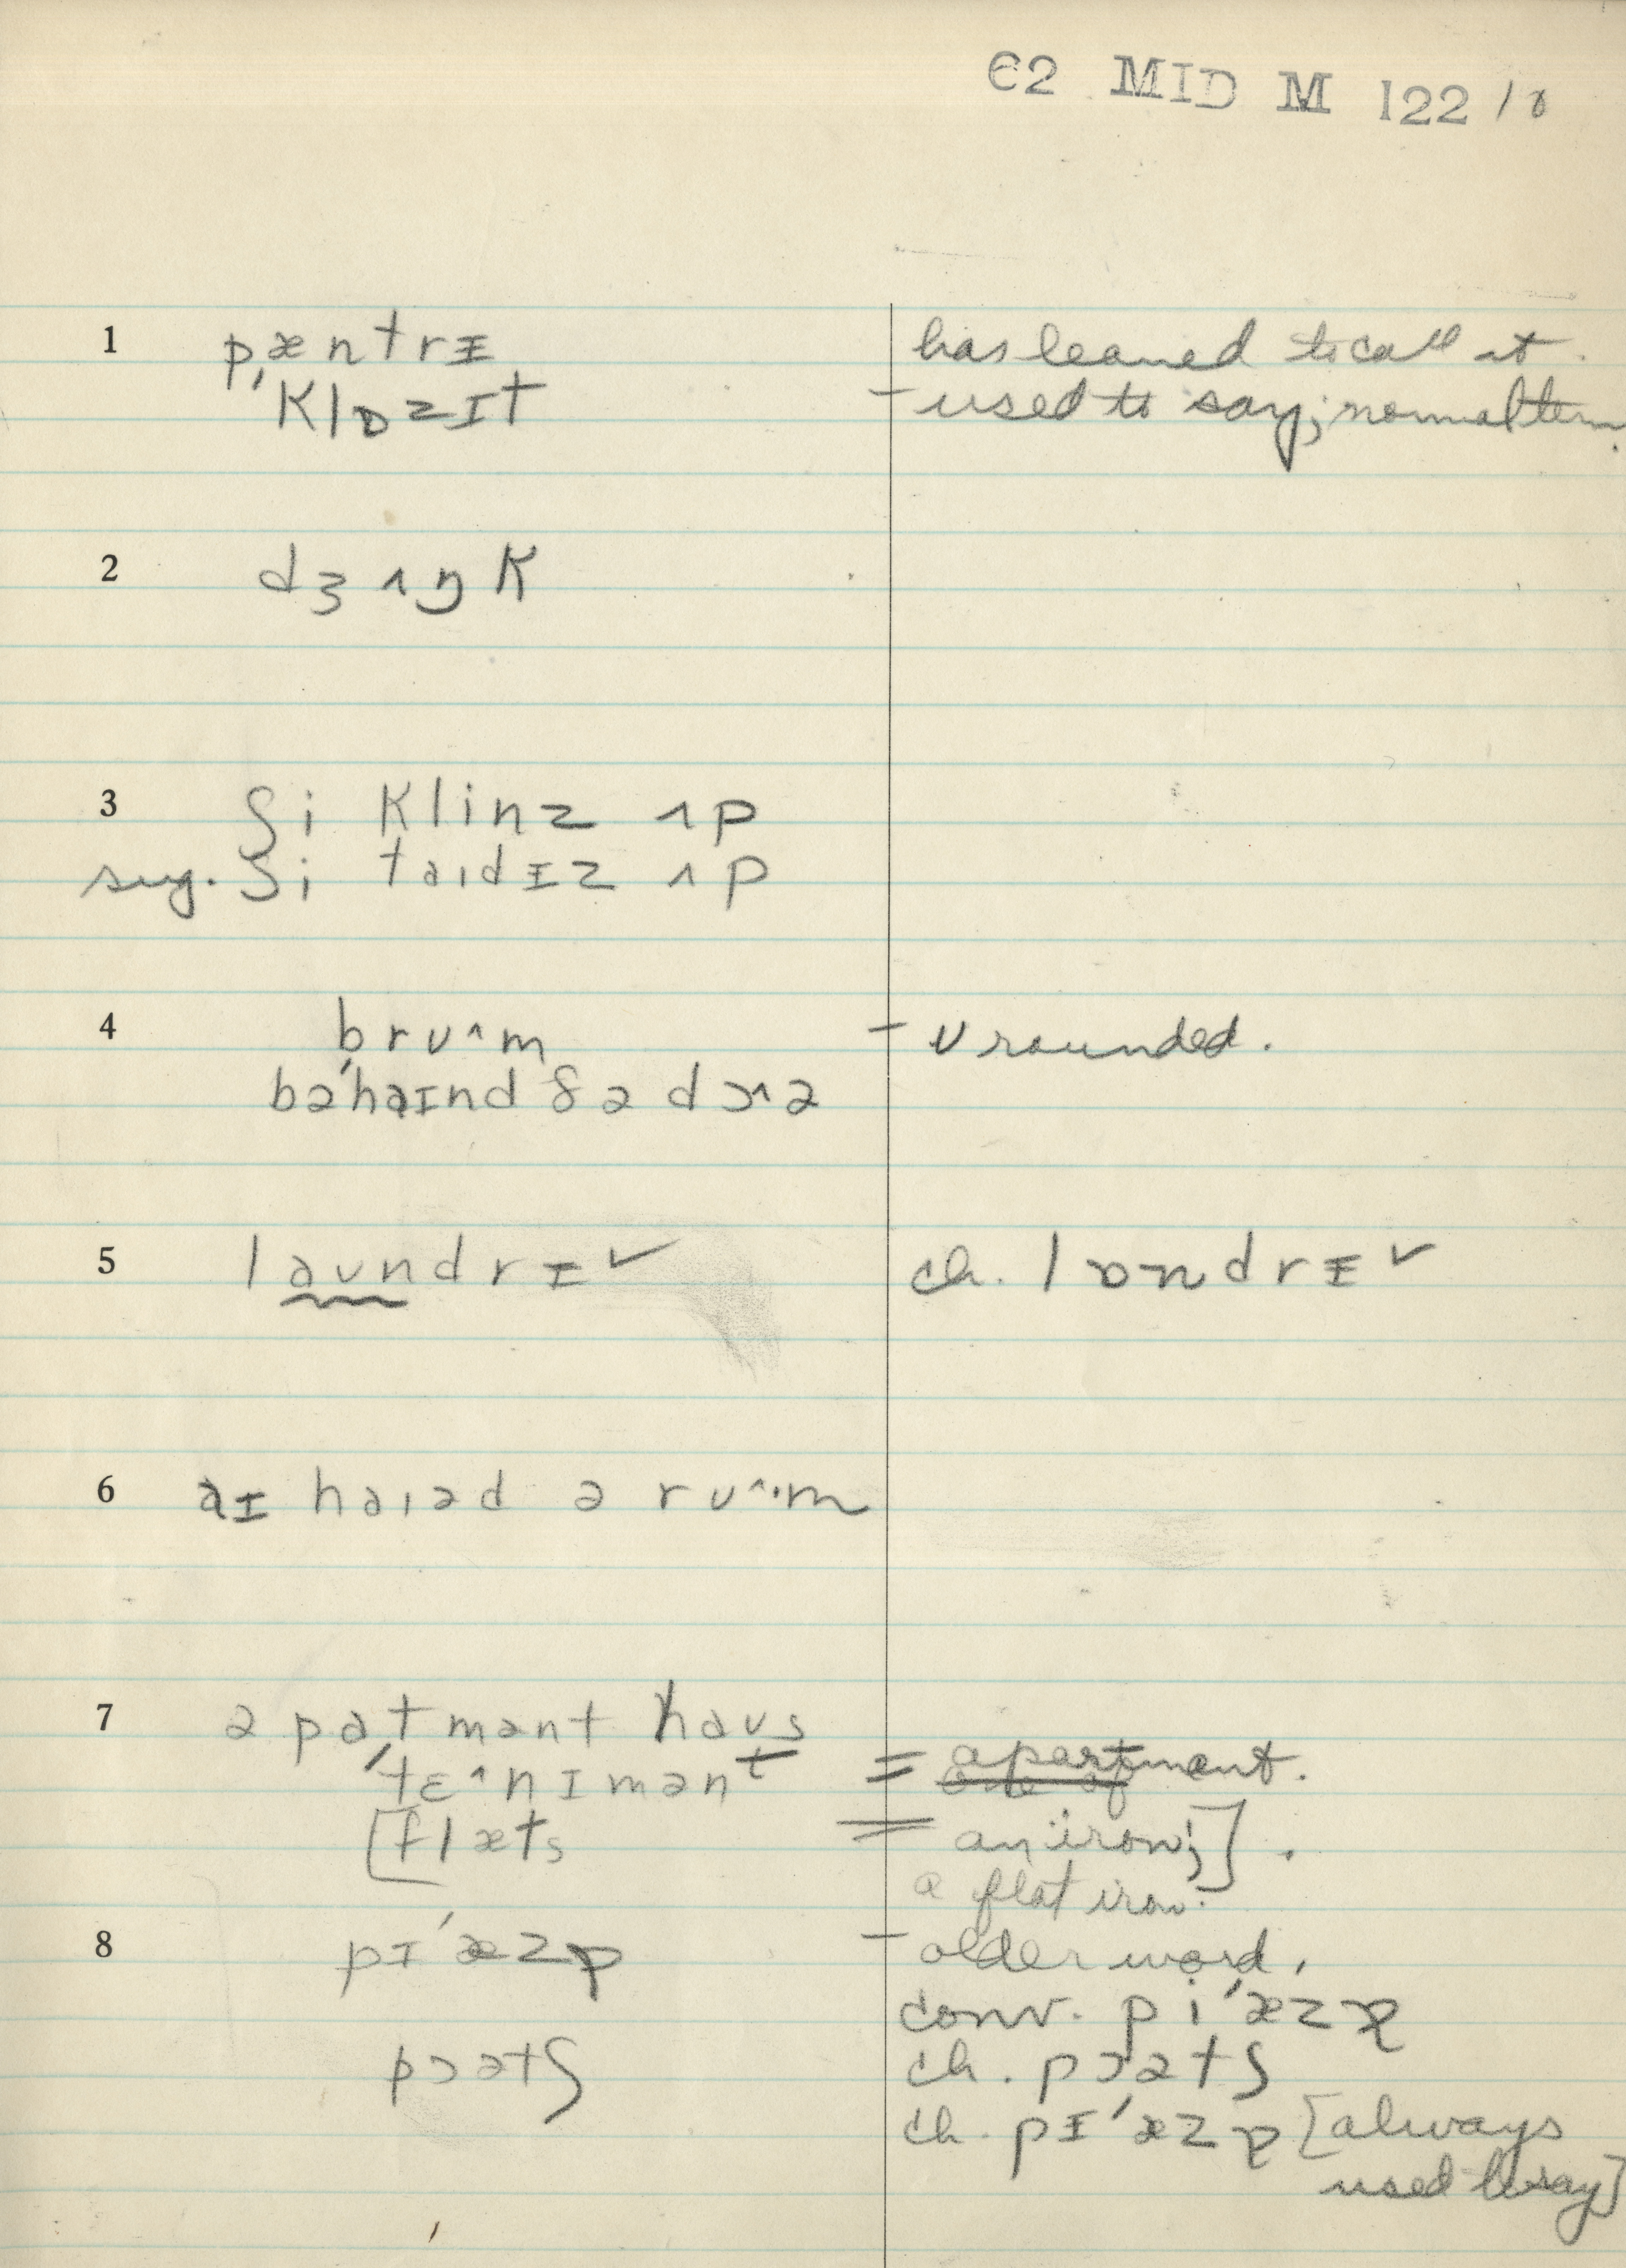 C2 MID M 122 / 8
1 pæntrɪ has learned to call it.
ˈklɒzɪt – used to say; normal term.
2 dʒʌŋk
3 ʃi klinz ʌp
sug. ʃi taɪdɪz ʌp
4 brʊˆm – ʊ rounded.
bəˈhaɪnd ðə dɔˆə
5 laʊndrɪ ✓ ch. lɒndrɪ ✓
6 aɪ haɪəd ə rʊˆ·m
7 əpatmənt haʊs
ˈtɛˆnɪmənt = apartment.
[flæts = an iron;] .
a flat iron.
8 pɪˈæzɐ – older word,
conv. piˈæzɐ
pɔətʃ ch. pɔətʃ
ch. pɪˈæzɐ [always
used to say]